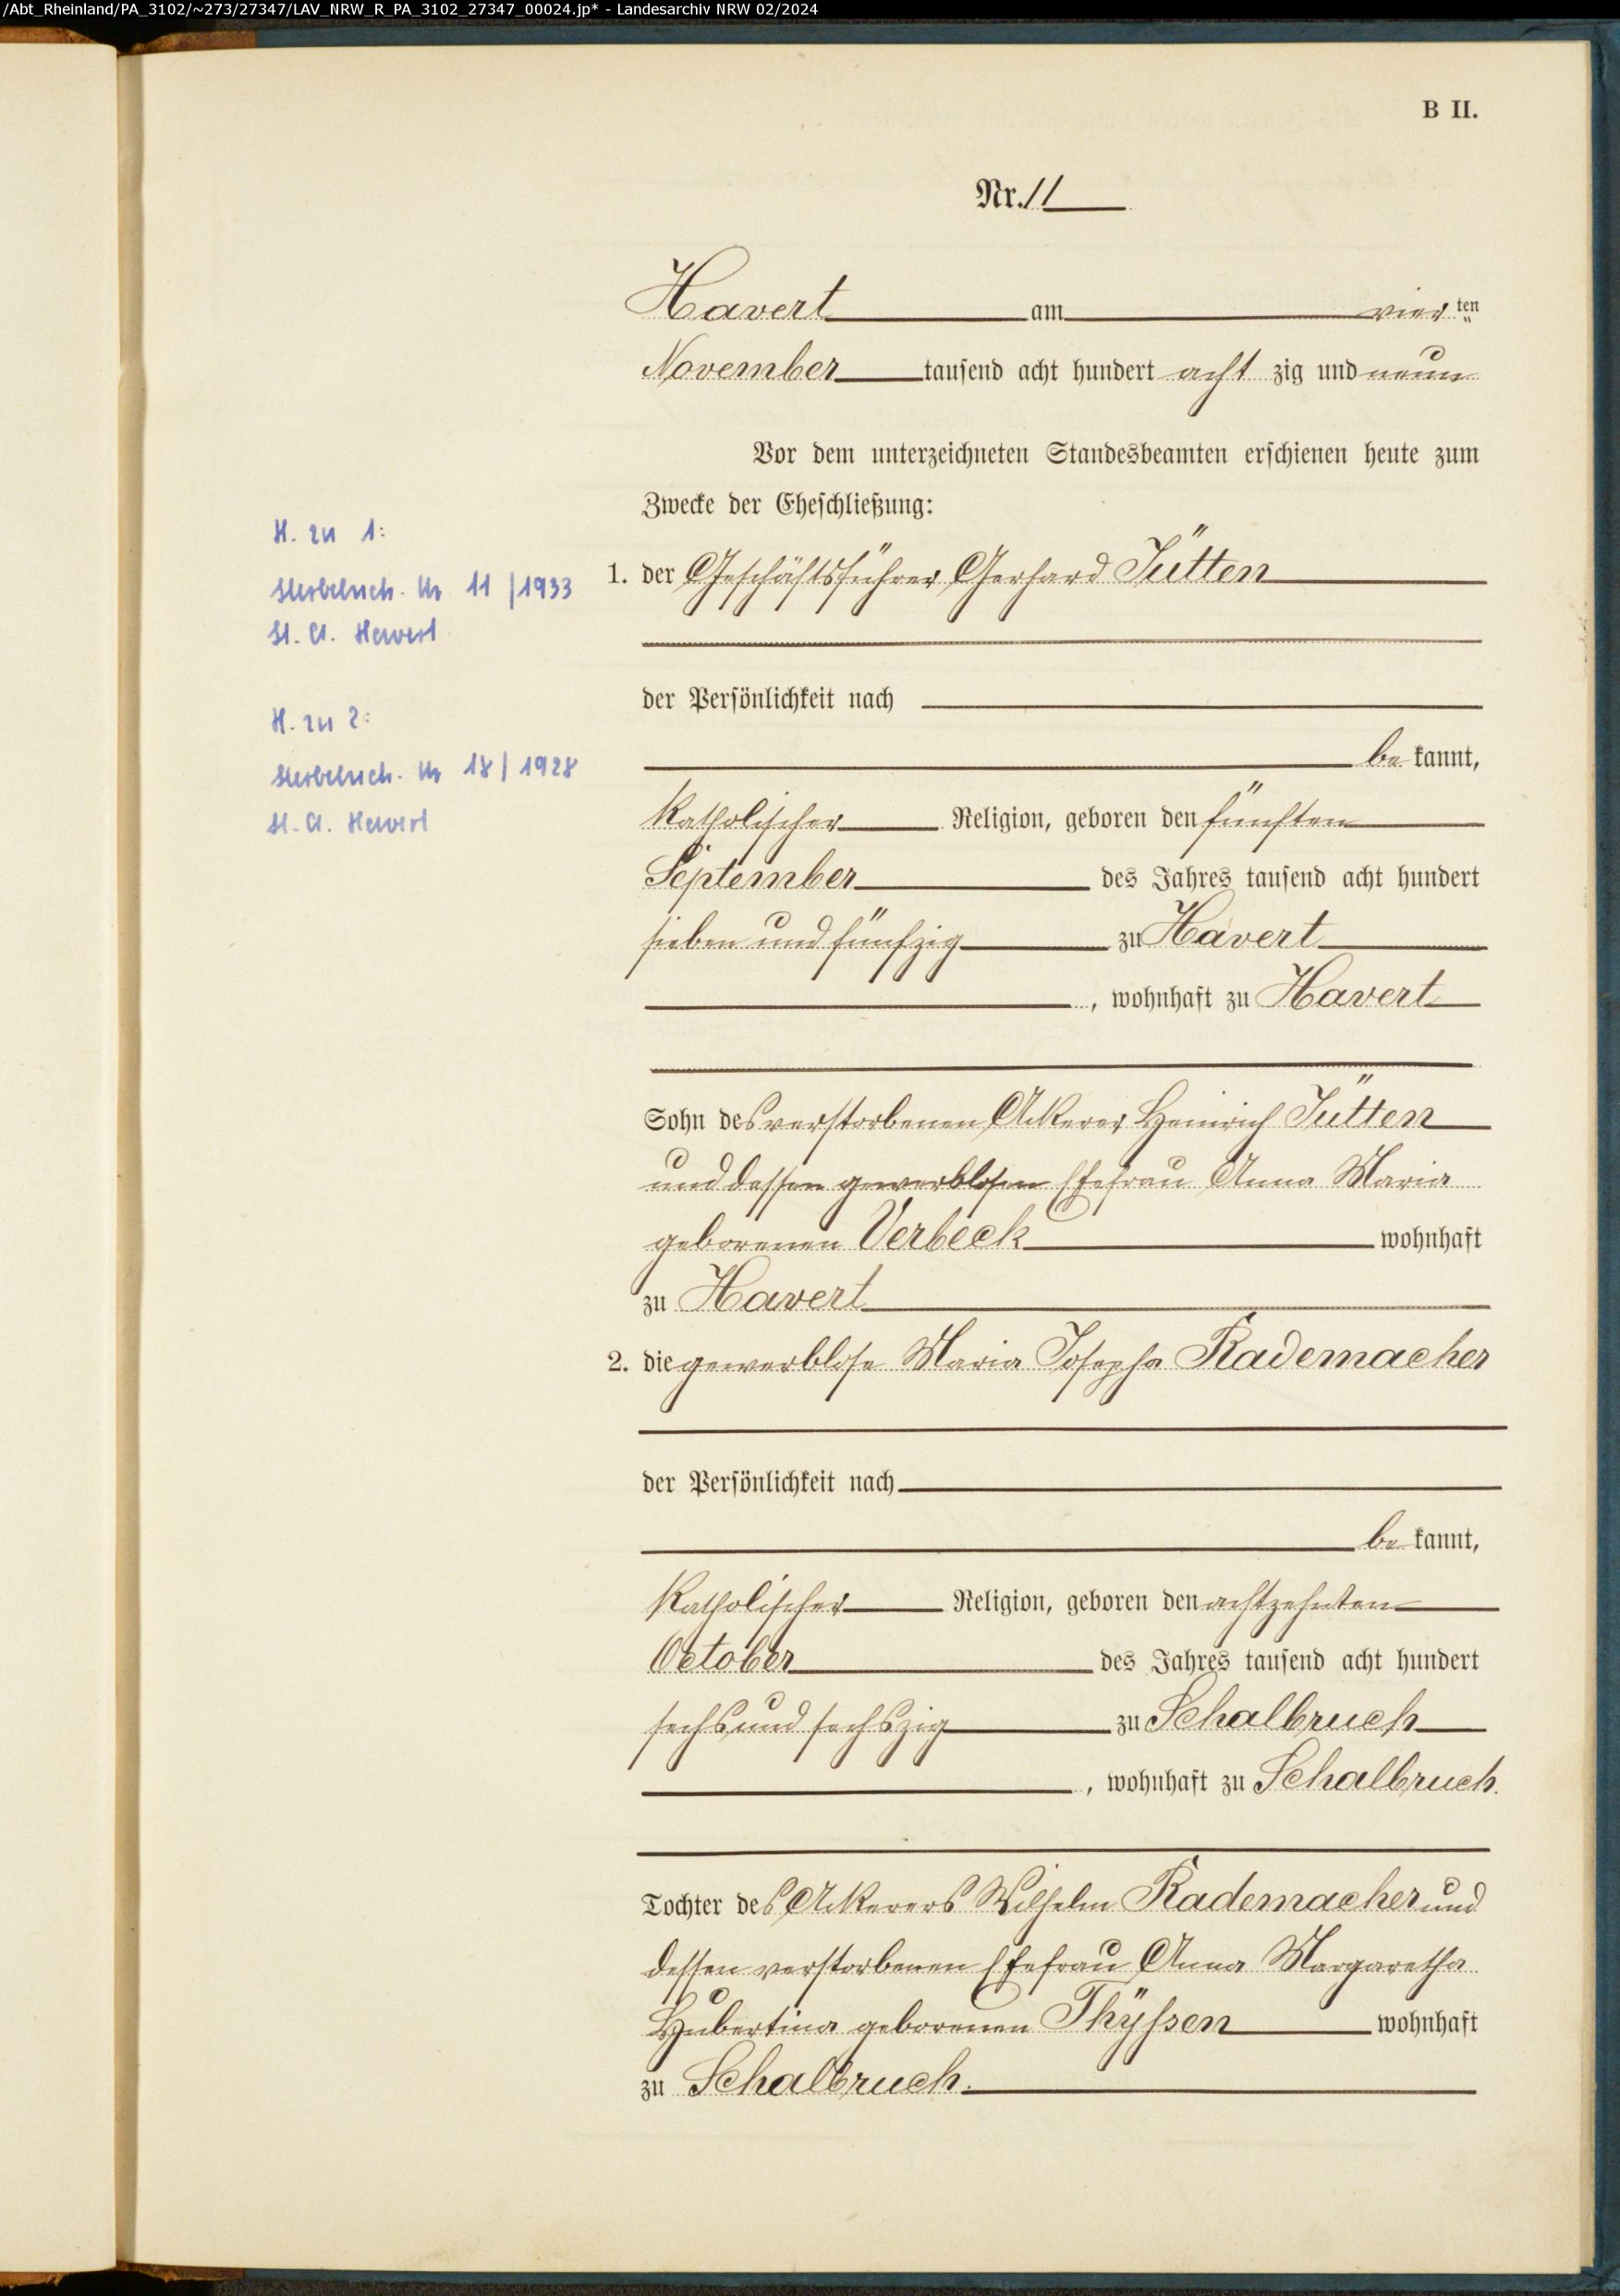 /Abt_Rheinland/PA_3102/~273/27347/LAV_NRW_R_PA_3102_27347_00024.jp* - Landesarchiv NRW 02/2024
B II.
Nr. 11
Havert am vier ten
November tausend acht hundert acht zig und neun
Vor dem unterzeichneten Standesbeamten erschienen heute zum
Zwecke der Eheschließung:
1. der Geschäftsführer Gerhard Jütten
der Persönlichkeit nach
be kannt,
katholischer Religion, geboren den fünften
September des Jahres tausend acht hundert
sieben und fünfzig zu Havert
, wohnhaft zu Havert
Sohn des verstorbenen Ackerer Heinrich Jütten
und dessen gewerblosen Ehefrau Anna Maria
geborenen Verbeek wohnhaft
zu Havert
2. die gewerblose Maria Josepha Rademacher
der Persönlichkeit nach
be kannt,
katholischer Religion, geboren den achtzehnten
October des Jahres tausend acht hundert
sechs und sechszig zu Schalbruch
, wohnhaft zu Schalbruch.
Tochter des Ackerers Wilhelm Rademacher und
dessen verstorbenen Ehefrau Anna Margaretha
Hubertina geborenen Thÿssen wohnhaft
zu Schalbruch.
H. zu 1:
Sterbebuch. Nr 11/1933
St. A. Havert
H. zu 2:
Sterbebuch. Nr 18/1928
St. A. Havert